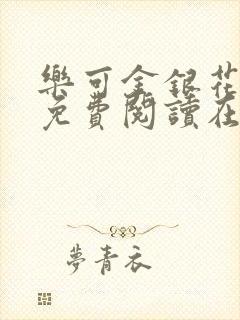 樂可金銀花
免費閱讀在
夢青衣